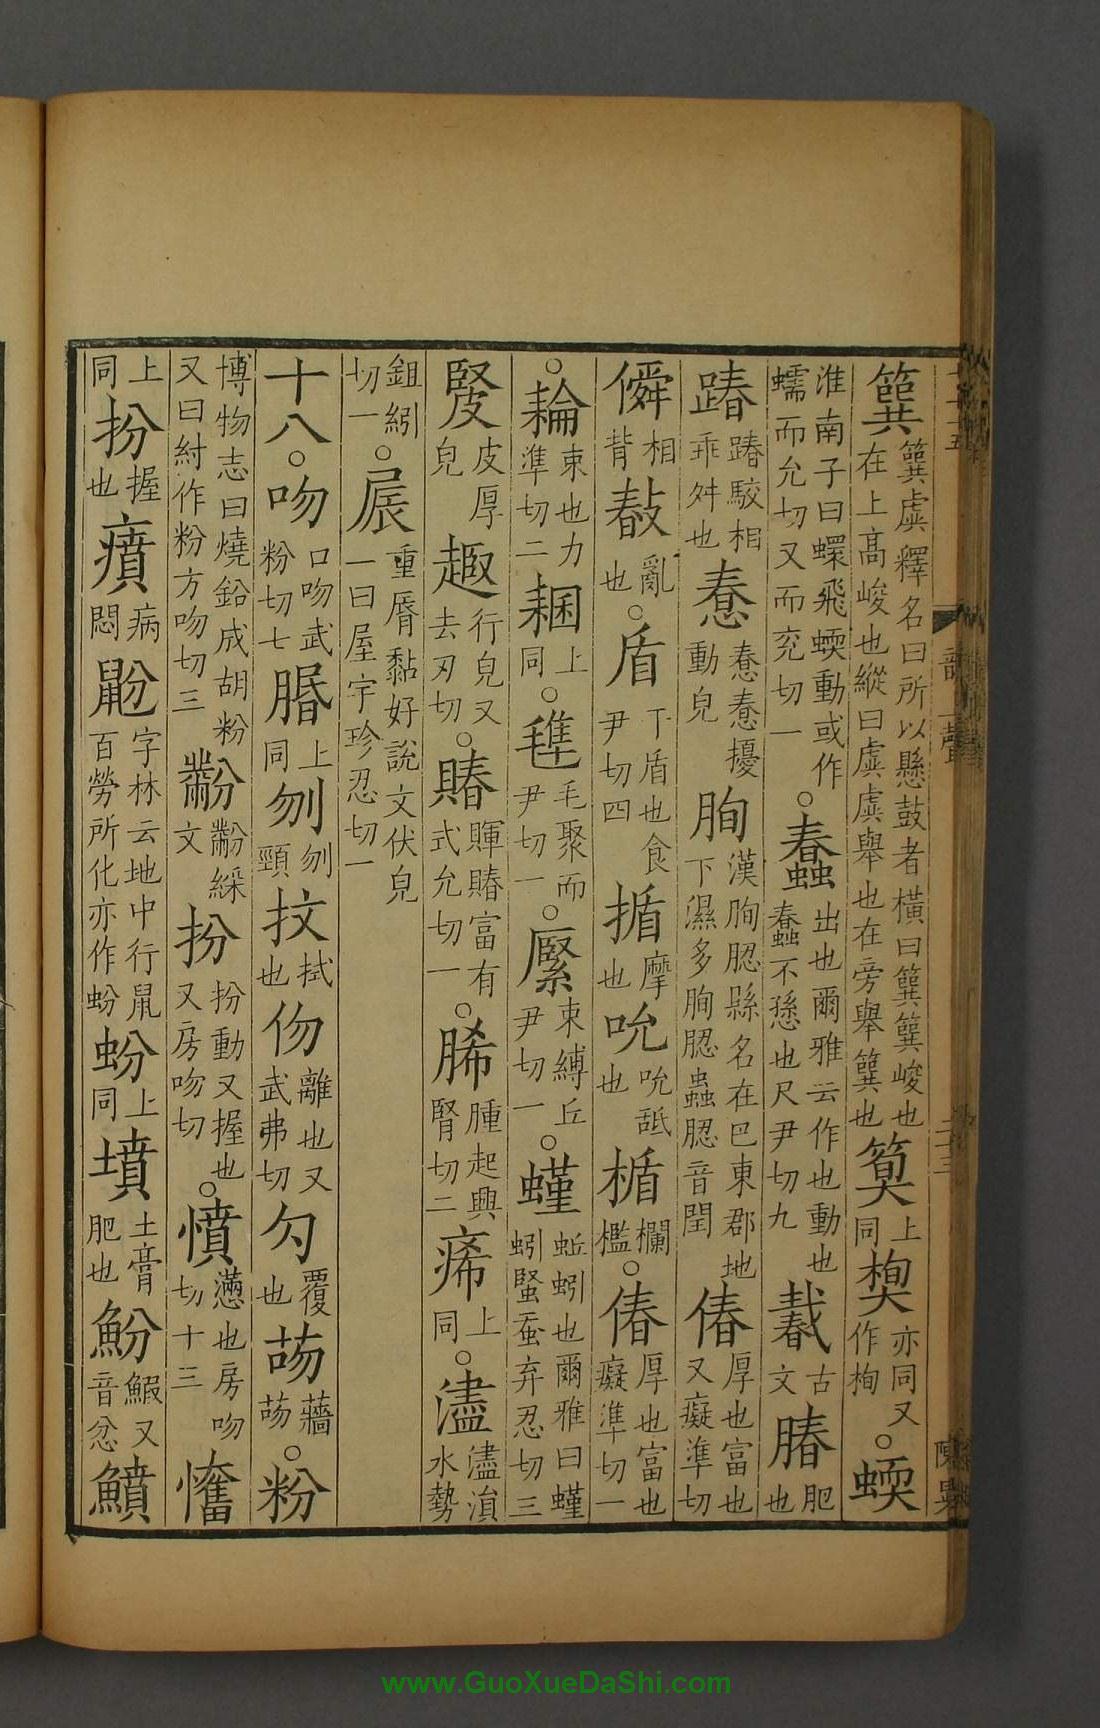 簨簨虡釋名曰所以懸鼓者橫曰簨簨峻也在上高峻也縱曰虡虡舉也在旁舉簨也筧上同㮷亦同又作栒○蝡
淮南子曰蠉飛蝡動或作蠕而允切又而兖切一○蠢出也爾雅云作也動也蠢不遜也尺尹切九𢧵古文䐏肥也
踳踳駮相乖舛也惷惷惷擾動皃朐漢朐䏰縣名在巴東郡地下濕多朐䏰蟲䏰音閏偆厚也富也又癡準切
僢相背𢾎亂也○盾干盾也食尹切四揗摩也吮吮舐也楯欄檻○偆厚也富也癡準切一
○耣束也力準切二稇上同○毴毛聚而尹切一○緊束縛丘尹切一○螼蚯蚓也爾雅曰螼蚓蜸蚕弃忍切三
䟰皮厚皃趣行皃又去刃切○賰賱賰富有式允切一○脪腫起興腎切二痚上同○濜濜滇水勢
鉏紖切一○屒重脣黏好說文伏皃一曰屋宇珍忍切一
十八○吻口吻武粉切七脗上同刎刎頸抆拭也伆離也又武弗切勿覆也芴蘠芴○粉
博物志曰燒鉛成胡粉又曰紂作粉方吻切三黺黺綵文扮扮動又握也又房吻切○憤懣也房吻切十三㤓
上同扮握也㿎病悶鼢字林云地中行鼠百勞所化亦作蚡蚡上同墳土膏肥也魵鰕又音忿鱝
www.GuoXueDaShi.com